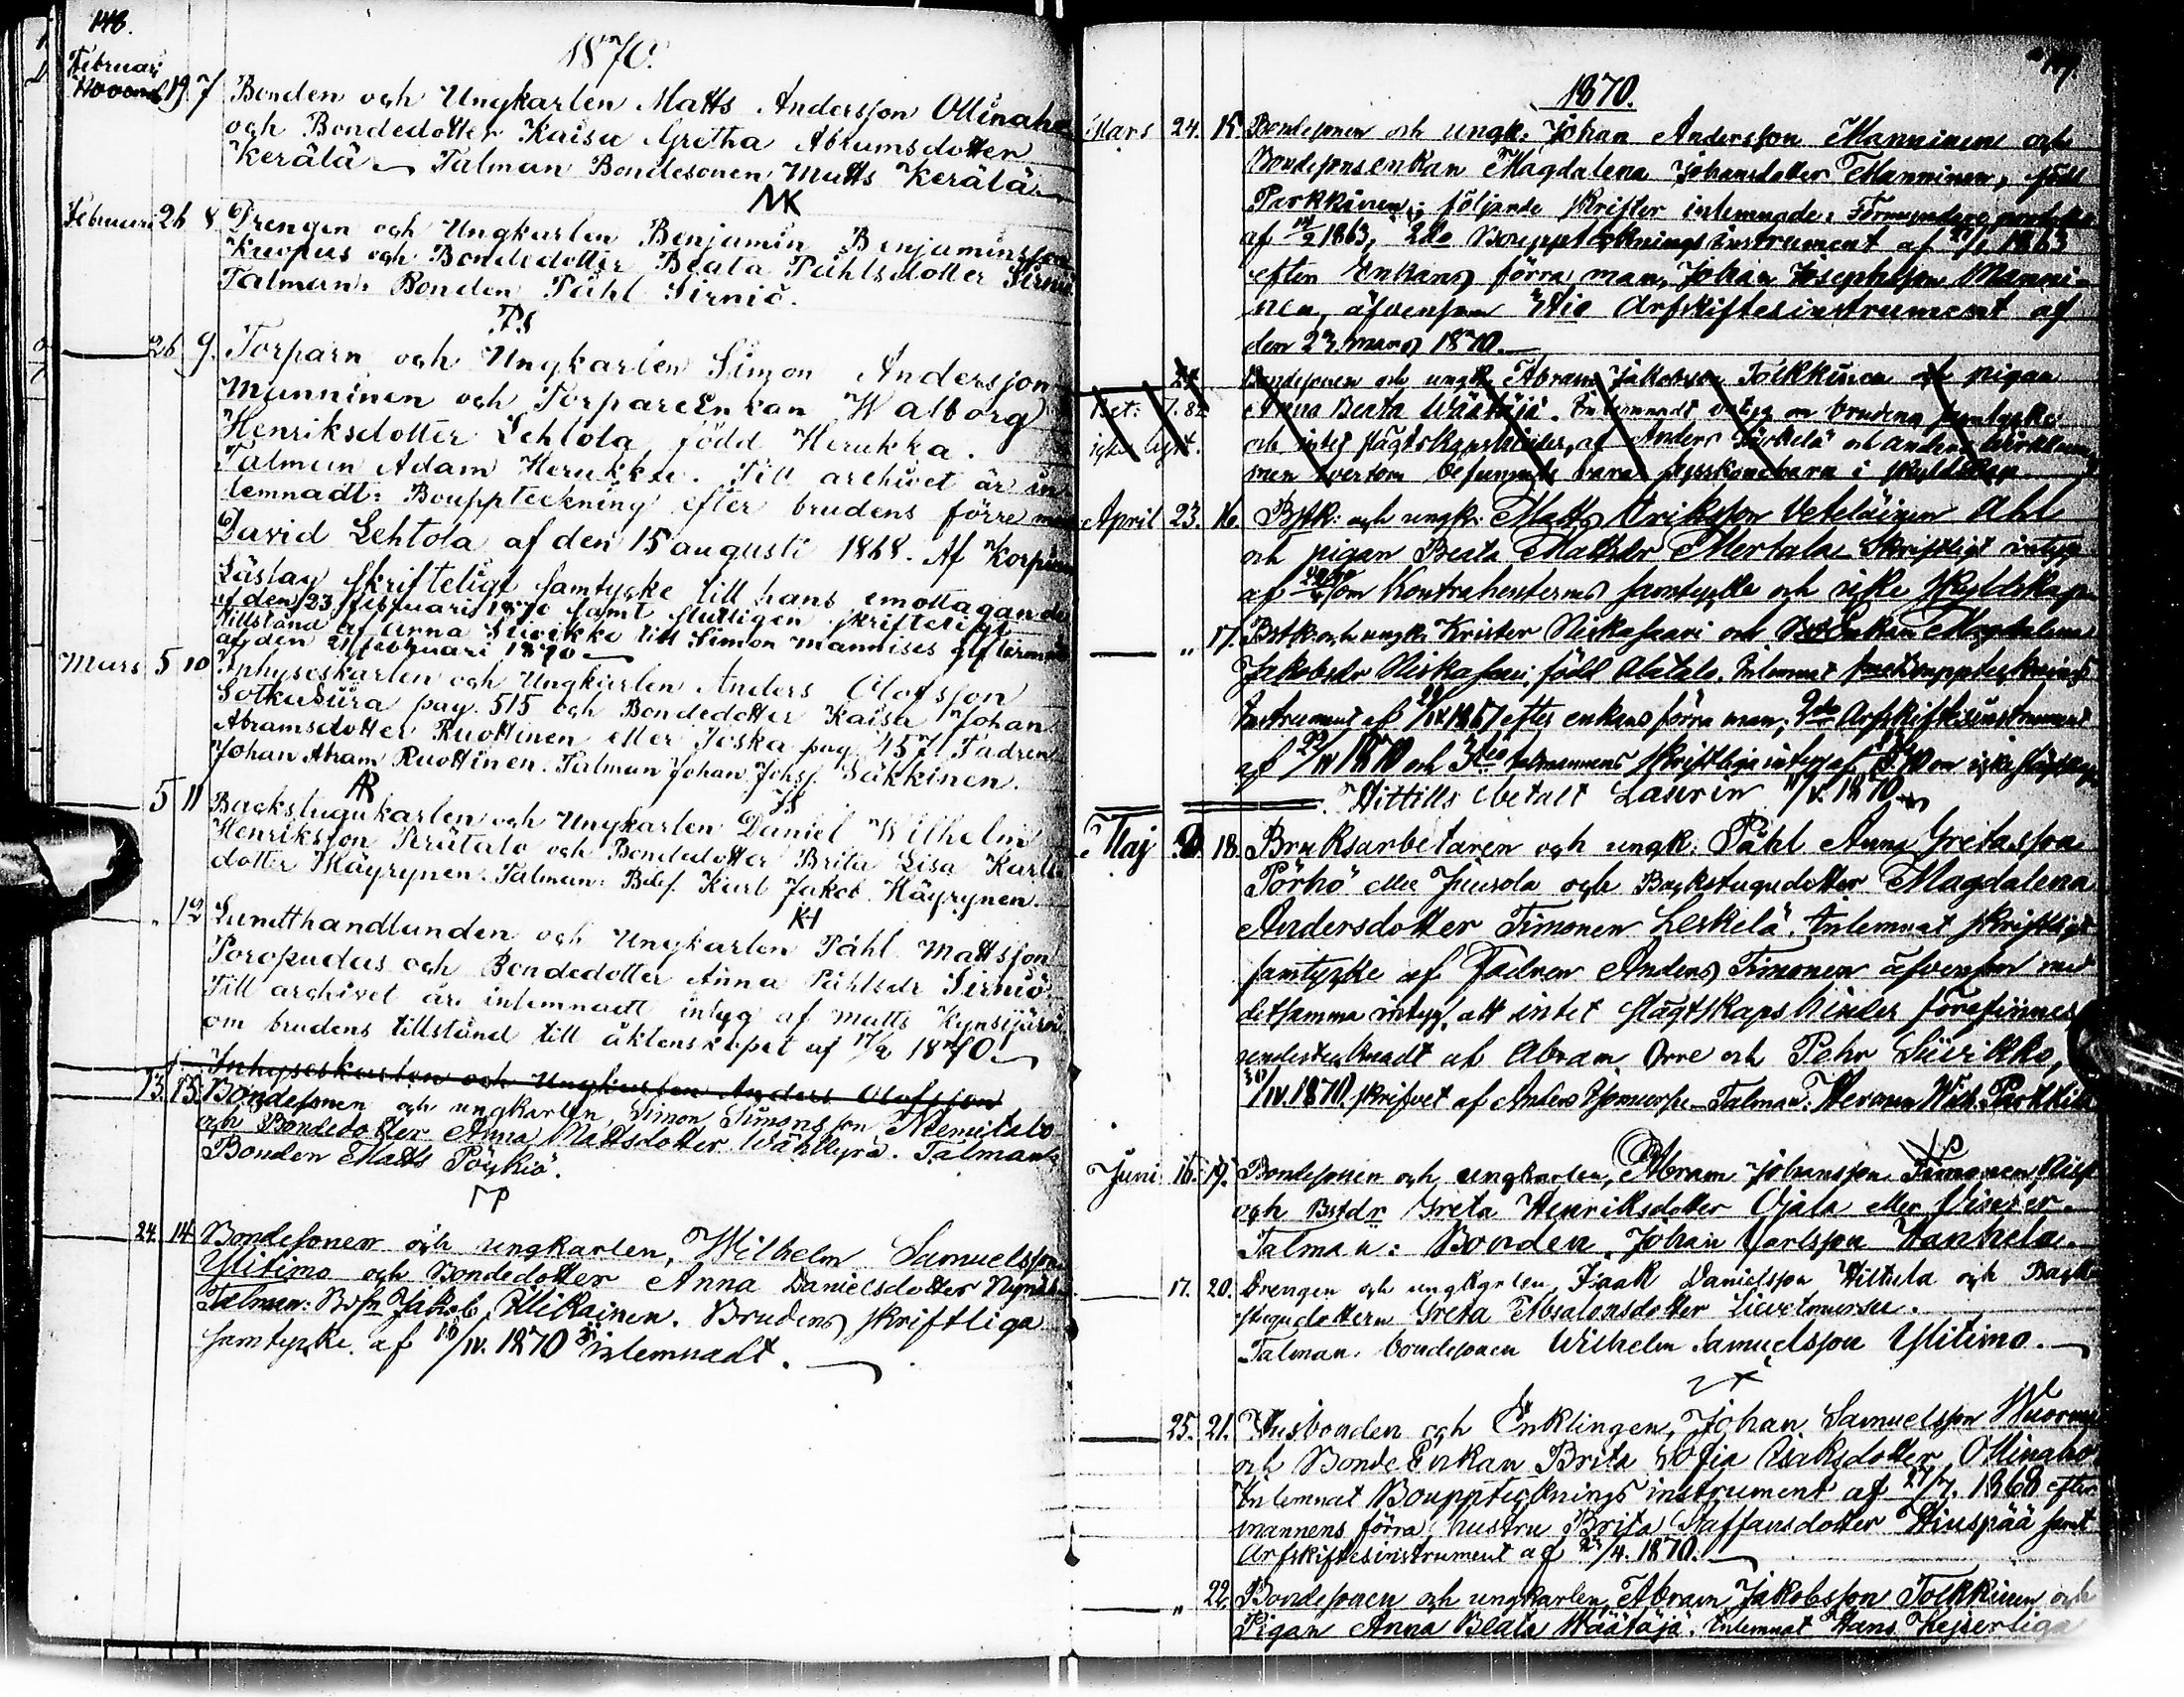 148.
1870.
Februari 19. 7 Bonden och Ungkarlen Matts Andersson Ollinaho
och Bondedotter Kaisa Gretha Abramsdotter
Kerälä. Talman Bondesonen Matts Kerälä.
MK
Februari 26 8 Drengen och Ungkarlen Benjamin Benjaminsson
Kuopus och Bondedotter Beata Påhlsdotter Sirniö
Talman: Bonden Påhl Sirniö.
PS
26 9. Torparn och Ungkarlen Simon Andersson
Manninen och TorpareEnkan Walborg
Henriksdotter Lehtola född Herukka.
Talman Adam Herukka. Till archivet är in-
lemnadt: Bouppteckning efter brudens förre man
David Lehtola af den 15 augusti 1868. Af
skrifteligt samtycke till hans emottagande
af den 23 februari 1870 samt slutligen skrifteligt
tillstånd af Anna till Simon
af den 21 februari 1870
Mars 5 10 Inhyseskarlen och Ungkarlen Anders Olofsson
Sotkasiira pag. 515 och Bondedotter Kaisa Johan
Abramsdotter Ruottinen eller Joska pag 457. Fadren
Johan Abram Ruottinen. Talman Johan Johss. Säkkinen.
AR JS
5 11 Backstugukarlen och Ungkarlen Daniel Wilhelm
Henriksson Perätalo och Bondedotter Brita Lisa Karls
dotter Käyrynen. Talman: Karl Jakob Käyrynen.
KH
" 12 och Ungkarlen Påhl Mattsson
Poropudas och Bondedotter Anna Påhlsdr Sirniö
Till archivet är inlemnadt intyg af Matts Kynsijärvi
om brudens tillstånd till äktenskapet af 17/2 1870
Inhyseskarlen och Ungkarlen Anders Olofsson
13. 13. Bondesonen och ungkarlen, Simon Simonsson Niemitalo
och Bondedotter Anna Mattsdotter Wähäkyrö. Talman
Bonden Matts Pöykiö.
MP
24. 14 Bondesonen och ungkarlen, Wilhelm Samuelsson
Ylitimo och Bondedotter Anna Danielsdotter
Talman: Jakob Mikainen. Brudens skriftliga
samtycke af /IV. 1870 inlemnadt.
149.
1870.
Mars 24. 15. Bondesonen och ungk: Johan Andersson Manninen och
Bondesonsenkan Magdalena Johansdotter Manninen, född
Parkkinen; följande skrifter inlemnade:
af 1863, 2do Bouppteckningsinstrument af 1863
efter Enkans förra man, Johan Josephsson Manni-
nen, äfvensom 3tio Arfskiftesinstrument af
den 23. mars 1870.
24. Bondesonen och ungk. Abram Jakobsson Tolkkinen och pigan
Anna Beata Wäätäjä. Inlemnadt intyg om brudens samtycke
och intet slägtskapshinder, af Anders och andra
men tvertom befunnits vara i
April 23. 16. Bstk: och ungk: Matts Eriksson Veteläinen Ahl
och pigan Beata Mattsdr Mertala Skriftligt intyg
af om Kontrahenternas samtycke och icke skyldskap
" 17. Bstk: och ungk. Krister Niskasaari och Enkan Magdalena
Jakobsdr Niskasaari född Alatalo. Inlemnat Boupptecknings
Instrument af 1867 efter enkans förra man; 2do Arfskiftesinstrument
af 1870 och 3tio talmannens skriftliga intyg af om icke
Hittills betalt Laurin /V. 1870
Maj 18. Bruksarbetaren och ungk: Påhl Anna Gretasson
Pörhö eller Juusola och Backstugudotter Magdalena
Andersdotter Timonen Leskelä. Inlemnat skriftligt
samtycke af Fadren Anders Timonen äfvensom med
detsamma intyg, att intet slägtskapshinder förefinnes
undertecknadt af Abram Orre och Pehr Siivikko,
30/IV. 1870. skrifvet af Anders Talman: Herman Wilh. Parkkila
Juni 16. 19. Bondesonen och ungkarlen, Abram Johansson Timonen
och Bstdr Greta Henriksdotter Ojala eller
Talman: Bonden Johan Karlsson Hanhela.
17. 20. Drengen och ungkarlen, Isak Danielsson Hiltula och Back-
stugudottern Greta Absalonsdotter
Talman: bondesonen Wilhelm Samuelsson Ylitimo.
25. 21. Husbonden och Enklingen, Johan Samuelsson
och BondeEnkan Brita Sofia Isaksdotter Ollinaho
Inlemnat Bouppteckningsinstrument af 27/7. 1868 efter
mannens förra hustru Brita Staffansdotter Hiuspää samt
Arfskiftesinstrument af /4. 1870.
" 22. Bondesonen och ungkarlen, Abram Jakobsson Tolkkinen och
Pigan Anna Beata Wäätäjä. Inlemnat Hans Kejserliga